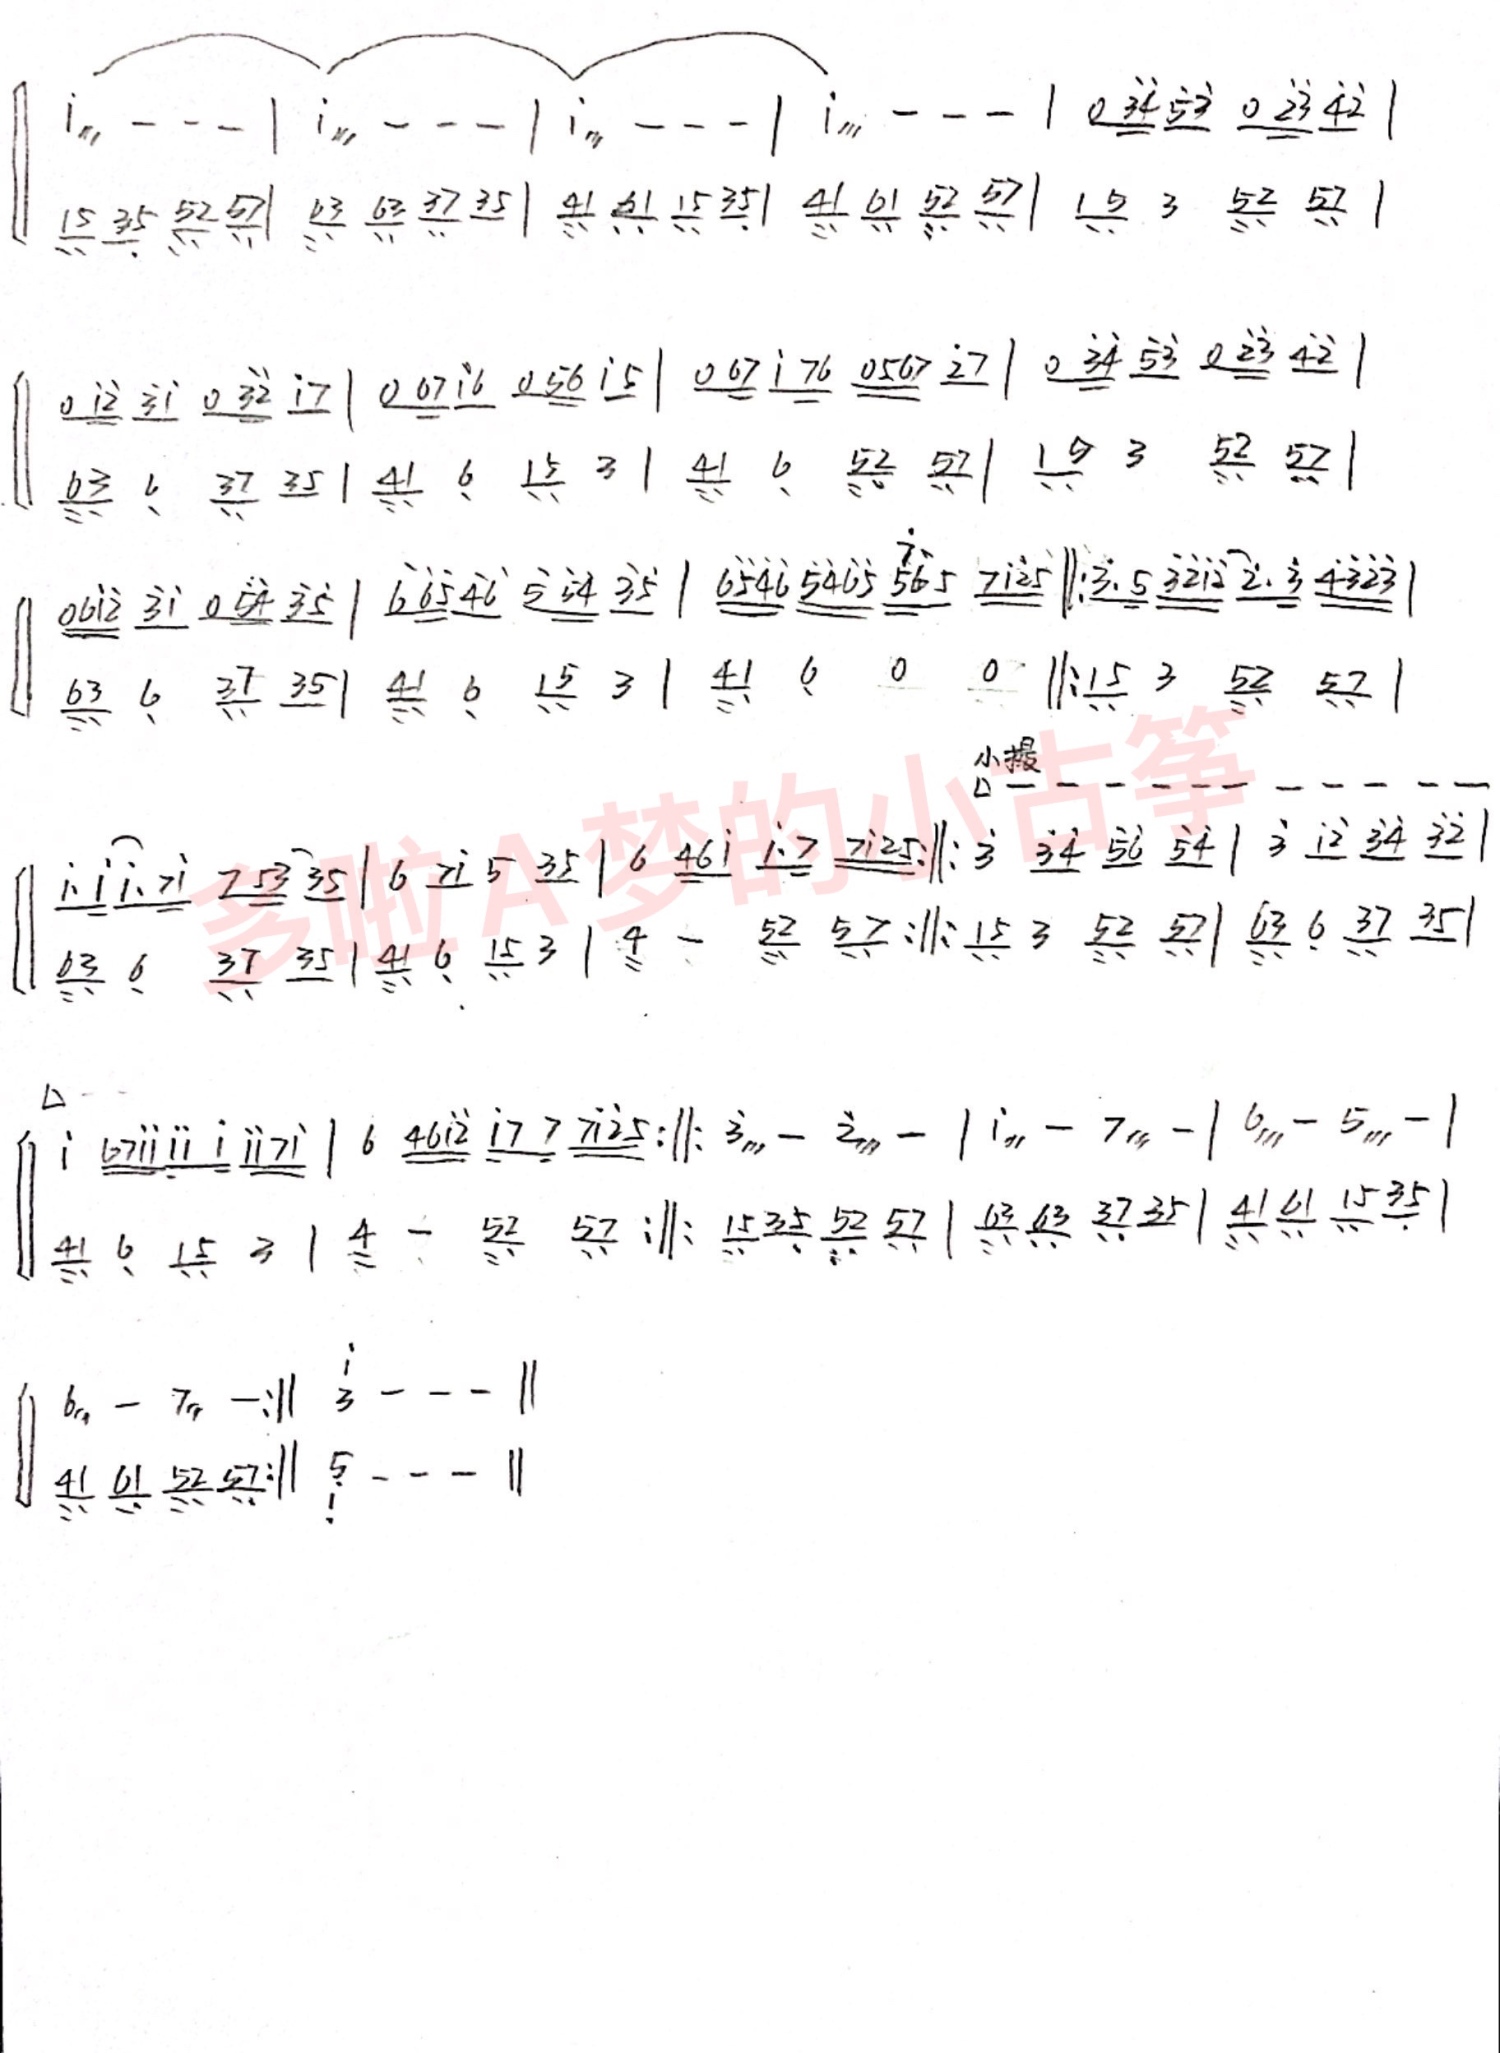 i``` - - - | i``` - - - | i``` - - - | i``` - - - | 0 34 53 0 23 42 |
15 35 52 57 | 63 63 37 35 | 41 61 15 35 | 41 61 52 57 | 15 3 52 57 |
0 i2 3i 0 32 i7 | 0 67 i6 0 56 i5 | 0 67 i 76 0567 27 | 0 34 53 0 23 42 |
63 6 37 35 | 41 6 15 3 | 41 6 52 57 | 15 3 52 57 |
06i2 3i 0 54 35 | 6 65 46 5 54 35 | 6546 5465 565 7i25 ‖: 3. 5 32i2 2. 3 4323 |
63 6 37 35 | 41 6 15 3 | 41 6 0 0 ‖: 15 3 52 57 |
小撮
i. i i. 7i 7 53 35 | 6 7i 5 35 | 6 46i i. 7 7i25 :‖: 3 34 56 54 | 3 i2 34 32 |
63 6 37 35 | 41 6 15 3 | 4 - 52 57 :‖: 15 3 52 57 | 63 6 37 35 |
多啦A梦的小古筝
i 67ii ii i ii7i | 6 46i2 i7 7 7i25 :‖: 3``` - 2``` - | i``` - 7``` - | 6``` - 5``` - |
41 6 15 3 | 4 - 52 57 :‖: 15 35 52 57 | 63 63 37 35 | 41 61 15 35 |
6``` - 7``` - :‖ 3 - - - ‖
41 61 52 57 :‖ 5 - - - ‖